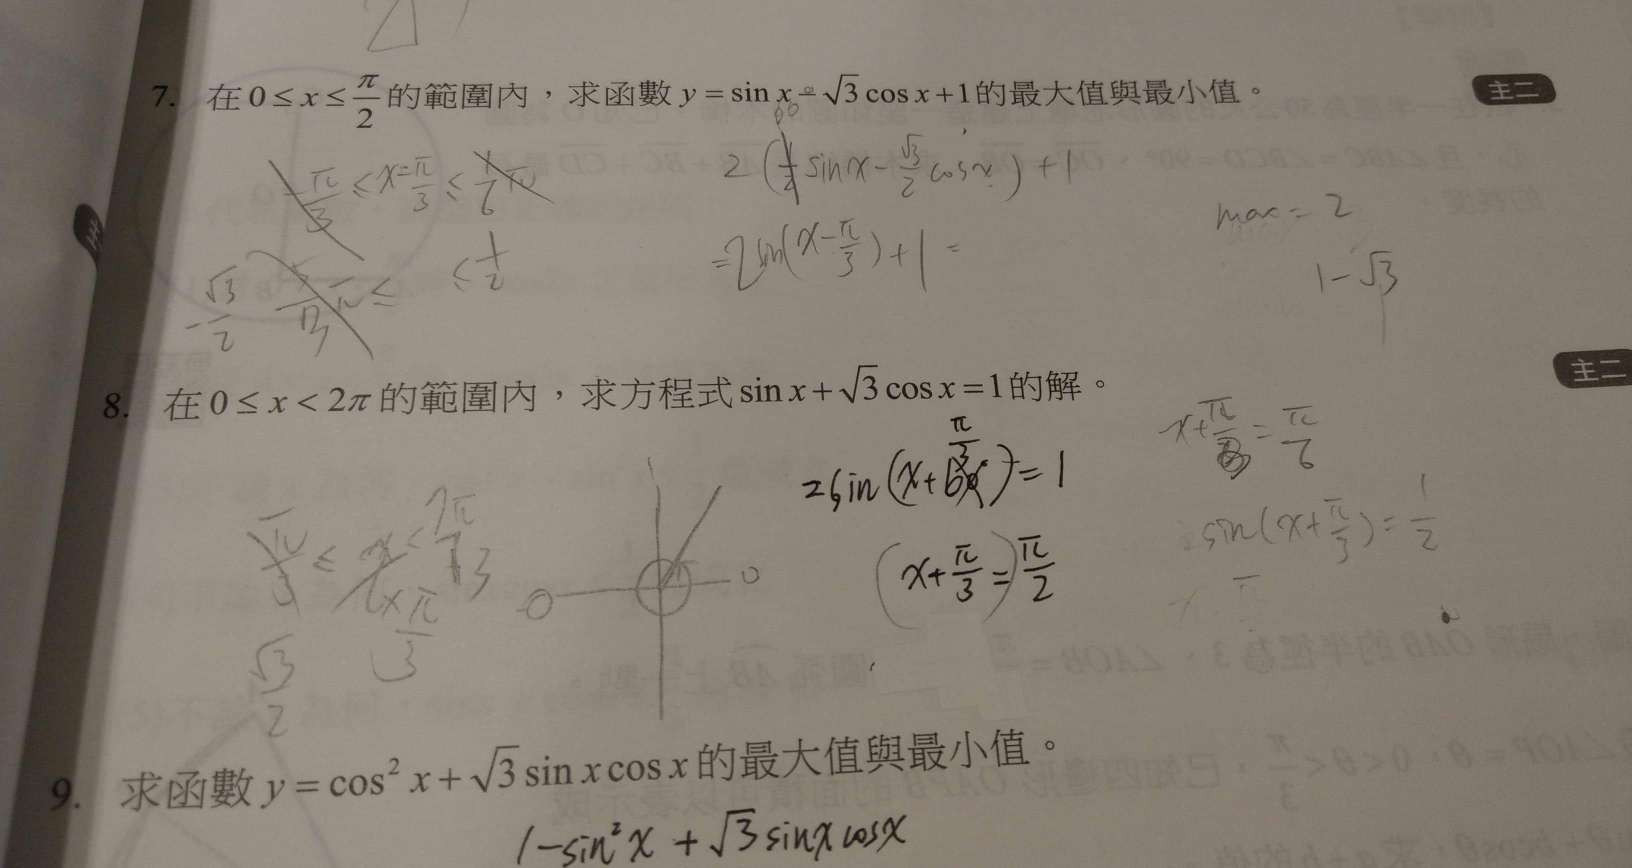 7. 在 0 ≤ x ≤ π/2 的範圍內，求函數 y = sin x - √3 cos x + 1 的最大值與最小值。
主二
-π/3 ≤ x - π/3 ≤ 1/6 π
2 ( 1/2 sin x - √3/2 cos x ) + 1
max = 2
= 2 sin(x - π/3) + 1 =
1 - √3
-√3/2 ≤ ≤ 1/2
8. 在 0 ≤ x < 2π 的範圍內，求方程式 sin x + √3 cos x = 1 的解。
主二
x + π/3 = π/6
2 sin (x + π/3) = 1
sin(x + π/3) = 1/2
(x + π/3 =) π/2
√3/2
9. 求函數 y = cos² x + √3 sin x cos x 的最大值與最小值。
1 - sin² x + √3 sin x cos x